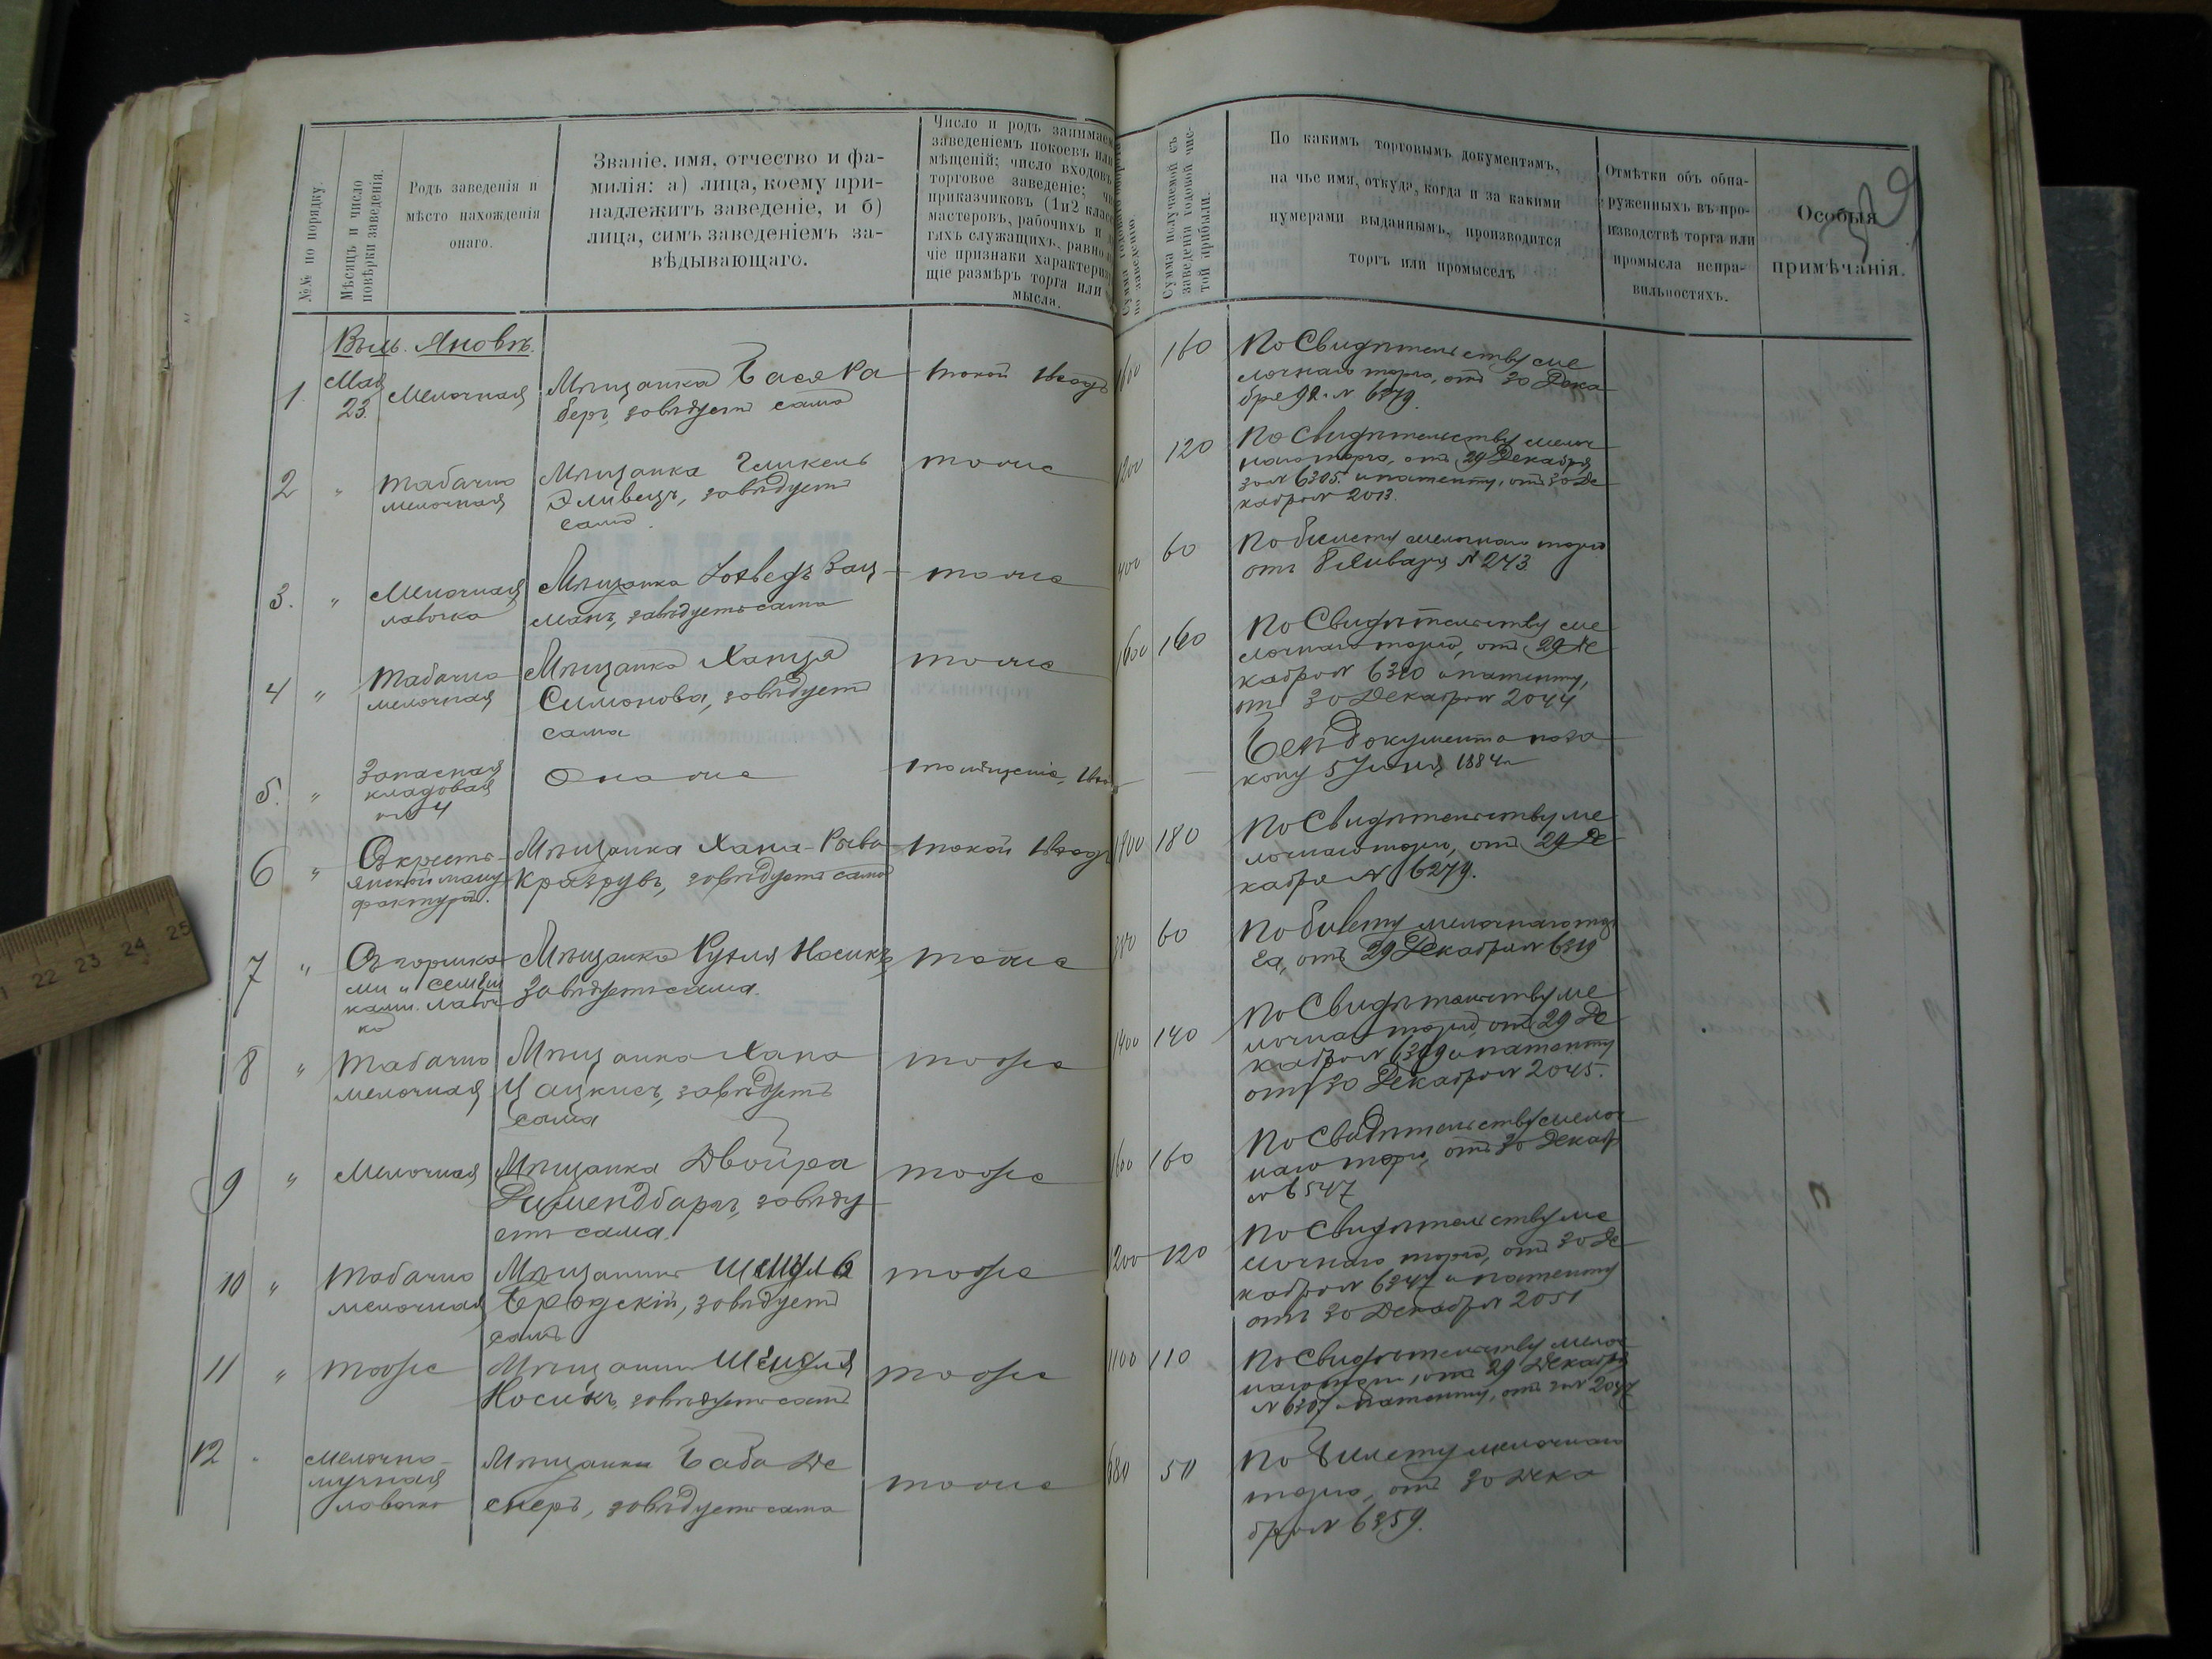 №№ по порядку.
Мѣсяцъ и число
повѣрки заведенія.
Родъ заведенія и
мѣсто нахожденія
онаго.
Званіе, имя, отчество и фа-
милія: а) лица, коему при-
надлежитъ заведеніе, и б)
лица, симъ заведеніемъ за-
вѣдывающаго.
Число и родъ занимаем
заведеніемъ покоевъ или
мѣщеній; число входовъ
торговое заведеніе;
приказчиковъ (1 и 2 класс
мастеровъ, рабочихъ и
гихъ служащихъ, равно
чіе признаки характериз
щіе размѣръ торга или
мысла.
Сумма
по заведенію.
Сумма получаемой съ
заведенія годовой чис-
той прибыли.
По какимъ торговымъ документамъ,
на чье имя, откуда, когда и за какими
нумерами выданнымъ, производится
торгъ или промыселъ
Отмѣтки объ обна-
руженныхъ въ про-
изводствѣ торга или
промысла непра-
вильностяхъ.
Особыя
примѣчанія.
Яновъ.
1
Мая
23.
Мелочная
Мѣщанка Бася Ра
беръ, завѣдуетъ сама
1 покой 1 входъ
1600
160
По Свидѣтельству ме
лочнаго торга, отъ 30 Дека
бря 92 N 6379.
2 "
Табачно
мелочная
Мѣщанка
завѣдуетъ
сама.
тоже
1200
120
По Свидѣтельству мелоч
наго торга, отъ 29 Декабря
за N 6305. и патенту, отъ 30 Де
кабря N 2013.
3. "
Мелочная
лавочка
Мѣщанка Зац-
манъ, завѣдуетъ сама
тоже
400
60
По билету мелочнаго торга
отъ 8 Января N 243.
4 "
Табачно
мелочная
Мѣщанка
Симонова, завѣдуетъ
сама
тоже
1600
160
По Свидѣтельству ме
лочнаго торга, отъ 29 Де
кабря N 6310 и патенту,
отъ 30 Декабря N 2044
5. "
Запасная
кладовая
N 4
Она же
1 помѣщеніе, 1 вхо
—
—
Безъ документа по за
кону 5 Іюня 1884 г
6 "
Съ кресть-
янской ману
фактурой.
Мѣщанка Хана-
завѣдуетъ сама
1 покой 1 входъ
1800
180
По Свидѣтельству ме
лочнаго торга, отъ 29 Де
кабря N 6279.
7 "
Съ горшка
ми и
ками. лавоч
ка
Мѣщанка Носикъ
завѣдуетъ сама.
тоже
60
По билету мелочнаго тор
га, отъ 29 Декабря N 6319
8 "
Табачно
мелочная
Мѣщанка Хана
Цацкисъ, завѣдуетъ
сама
тоже
1400
140
По Свидѣтельству ме
лочнаго торга, отъ 29 Де
кабря N 6309 и патенту
отъ 30 Декабря N 2045.
9 "
Мелочная
Мѣщанка Двойра
завѣду-
етъ сама.
тоже
1600
160
По Свидѣтельству мелоч
наго торга, отъ 30 Декаб
N 6347
10 "
Табачно
мелочная
Мѣщанинъ
Бродскій, завѣдуетъ
самъ
тоже
1200
120
По Свидѣтельству ме
лочнаго торга, отъ 30 Де
кабря N 6347 и патенту
отъ 30 Декабря N 2051
11 "
тоже
Мѣщанинъ
Носикъ, завѣдуетъ самъ
тоже
1100
110
По Свидѣтельству мелоч
наго торга, отъ 29 Декабря
N 6307 и патенту, отъ 30 N 2047
12 "
Мелочно-
мучная
лавочка
Мѣщанка
завѣдуетъ сама
тоже
680
50
По билету мелочнаго
торга, отъ 30 Дека
бря N 6359.
22 23 24 25